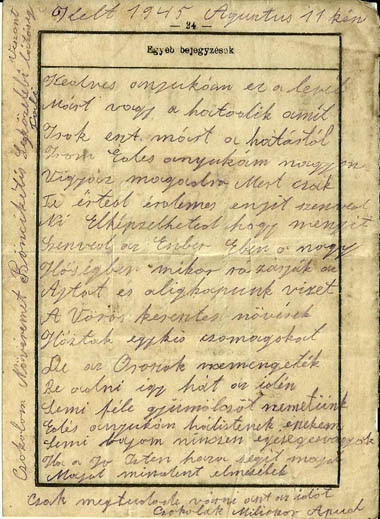 Kelt 1945 Agustus 11 kén
— 24 —
Egyéb bejegyzések
Kedves anyukám ez a levél
Márt vagy a hatodik amit
Irok ezt márt a hatástól
Irom Édes anyukám nagyon
Vigyász magadra Mert csak
Te értest érdemes enyit szenved
Nó Elképzelheted hogy menyit
Szenved az Ember Eben a nagy
Hőségben mikor rá zárják az
Ajtot és aligkapunk vizet
A Vörös keresztes növérek
Hóztak egykis csomagokat
De az Oroszok nemengeték
Be adni igy hát az idén
Semi féle gyümölcsöt nemetünk
Édes anyukám hálistenek nekem
Semi bajom ninszen egeségesvagyok
Ha a Jo Isten haza ségit majd
Majd mindent elmesélek
Csak megtudods várni azt az időt
Csokolak Miliokor Apud
Csokolom Növéremet Báncikátis Legközelebi látásig
Viszont